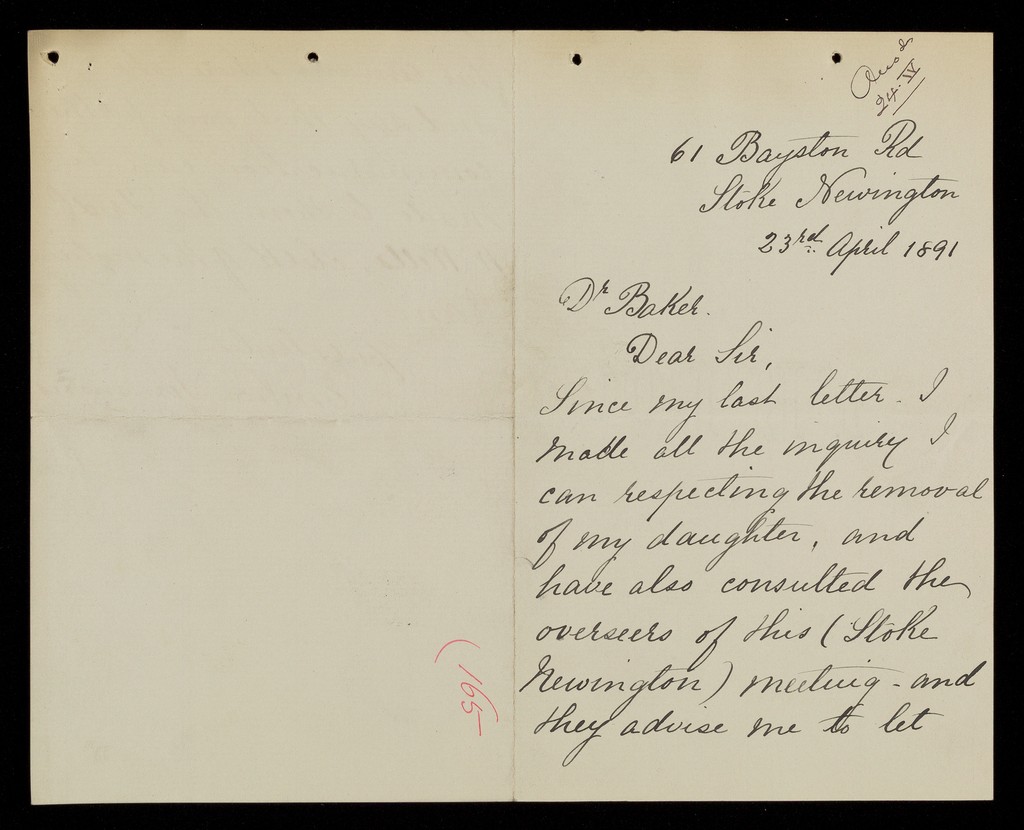 Ans d
24.IV
61 Bayston Rd
Stoke Newington
23rd April 1891
Dr Baker.
Dear Sir,
Since my last letter - I
made all the inquiry I
can respecting the removal
of my daughter, and
have also consulted the
overseers of this (Stoke
Newington) meeting - and
they advise me to let
(165